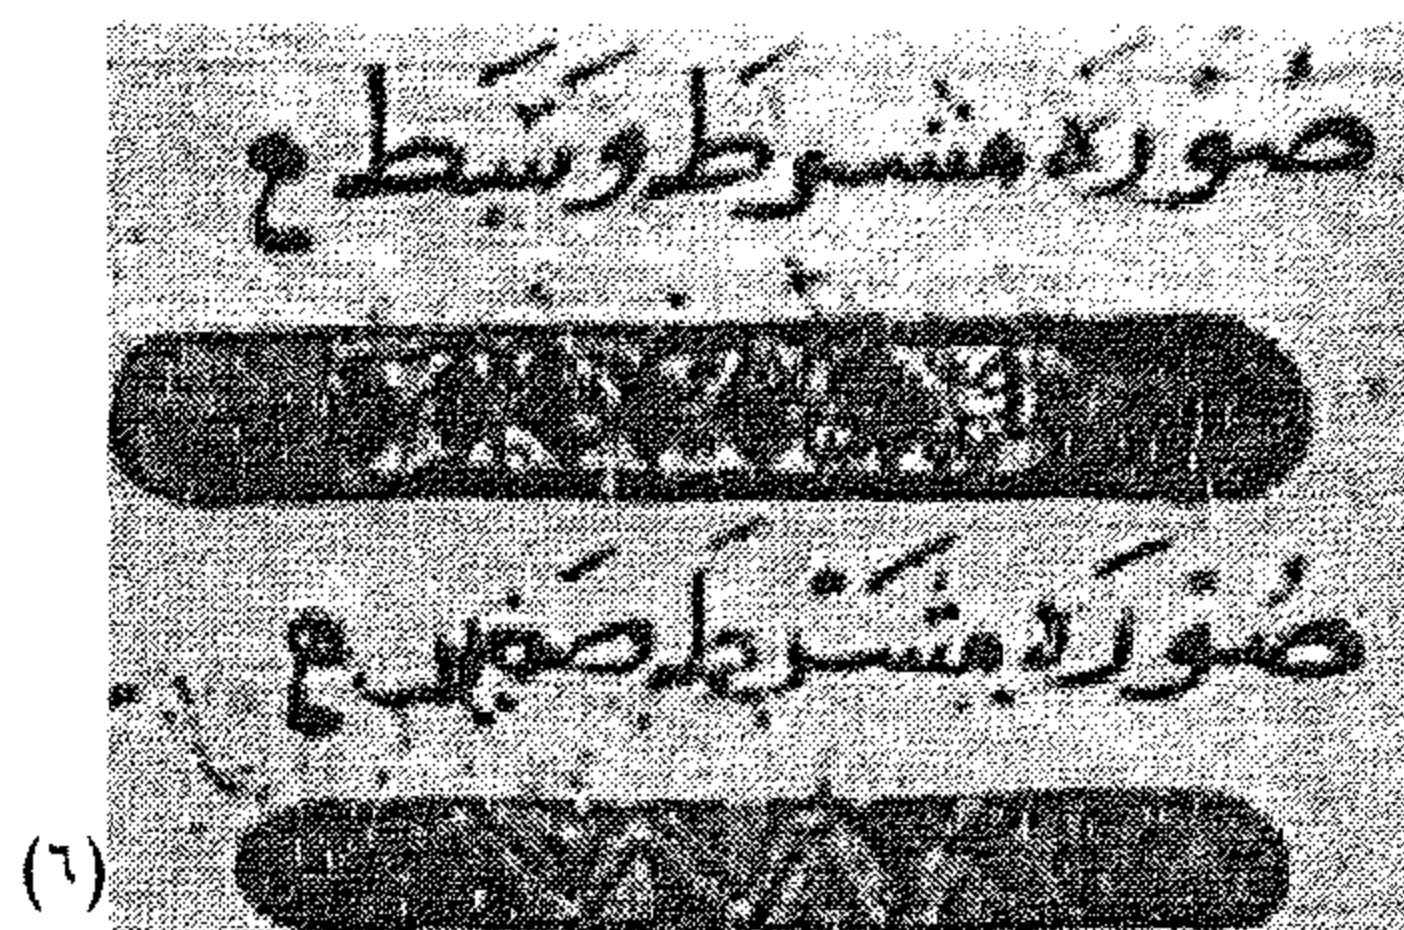 صُوْرَة مشرطَ وَسَط
صُوْرَة مشَرط صَغير
(٦)